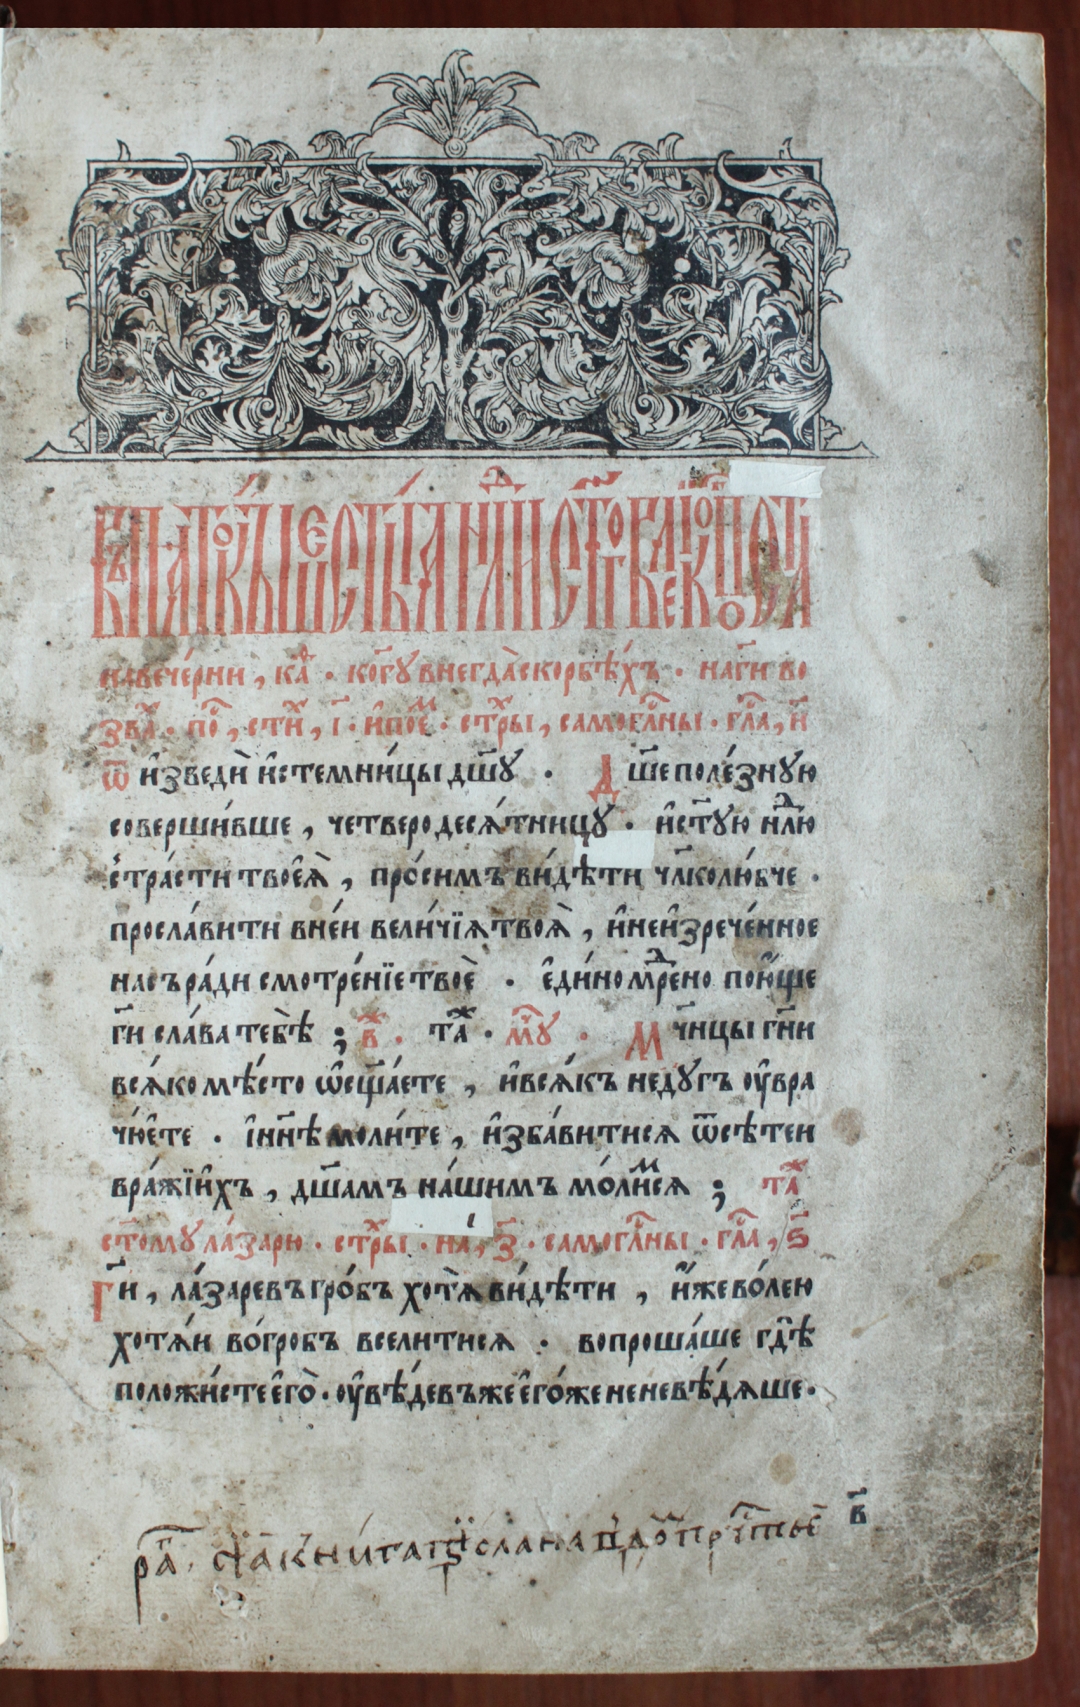 въ пято́къ шестыѧ нл҃и ст҃го ва́їѧ
навече́рни , каѳ҇ . ко гд҇у внегда̀ скорбѣ́хъ . наг҇и во
зва́х . по҇ , сти҇х , і҃ . и҆пое҇м . ст҇ры , самогла́сны . гла҇ , и҃
ѿ и҆зведѝ и҆стемни́цы дш҃у . Дш҃еполе́зную
соверши́вше , четверодеся́тницу . и҆ст҃ую нл҇дю
стра́сти твоеѧ̀ , про́симъ ви́дѣти чл҃колю́бче .
просла́вити вне́и вели́чїѧ твоѧ̀ , и҆неизрече́нное
насъ ра́ди смотре́нїе твоѐ . е҆ди́номꙋ҇дрено пою́ще
г҇и сла́ва тебѣ̀ ; в҃ . та҇ж . мч҇нку . Мч҇ницы гн҇и
всѧ́ко мѣ́сто ѡ҆сщ҃а́ете , и҆всѧ́къ неду́гъ ѹ҆вра
чю́ете . и҆нн҃ѣ моли́те , и҆зба́витисѧ ѿсѣ́теи
вра́жїихъ , дш҃амъ на́шимъ мо́лимсѧ ; та҇ж
ст҃ому ла́зарю . ст҇ры . на , з҃ . самогла́сны . гла҇ , ѕ҃
Г҇и , ла́заревъ гро́бъ хотѧ̀ ви́дѣти , и҆́же во́лею
хотѧ́и во́ гробъ всели́тисѧ . вопроша́ше гдѣ̀
положи́сте е҆го̀ . ѹ҆вѣ́девъ же е҆го́же не невѣ́дѧше .
в҃
сиѧ книга